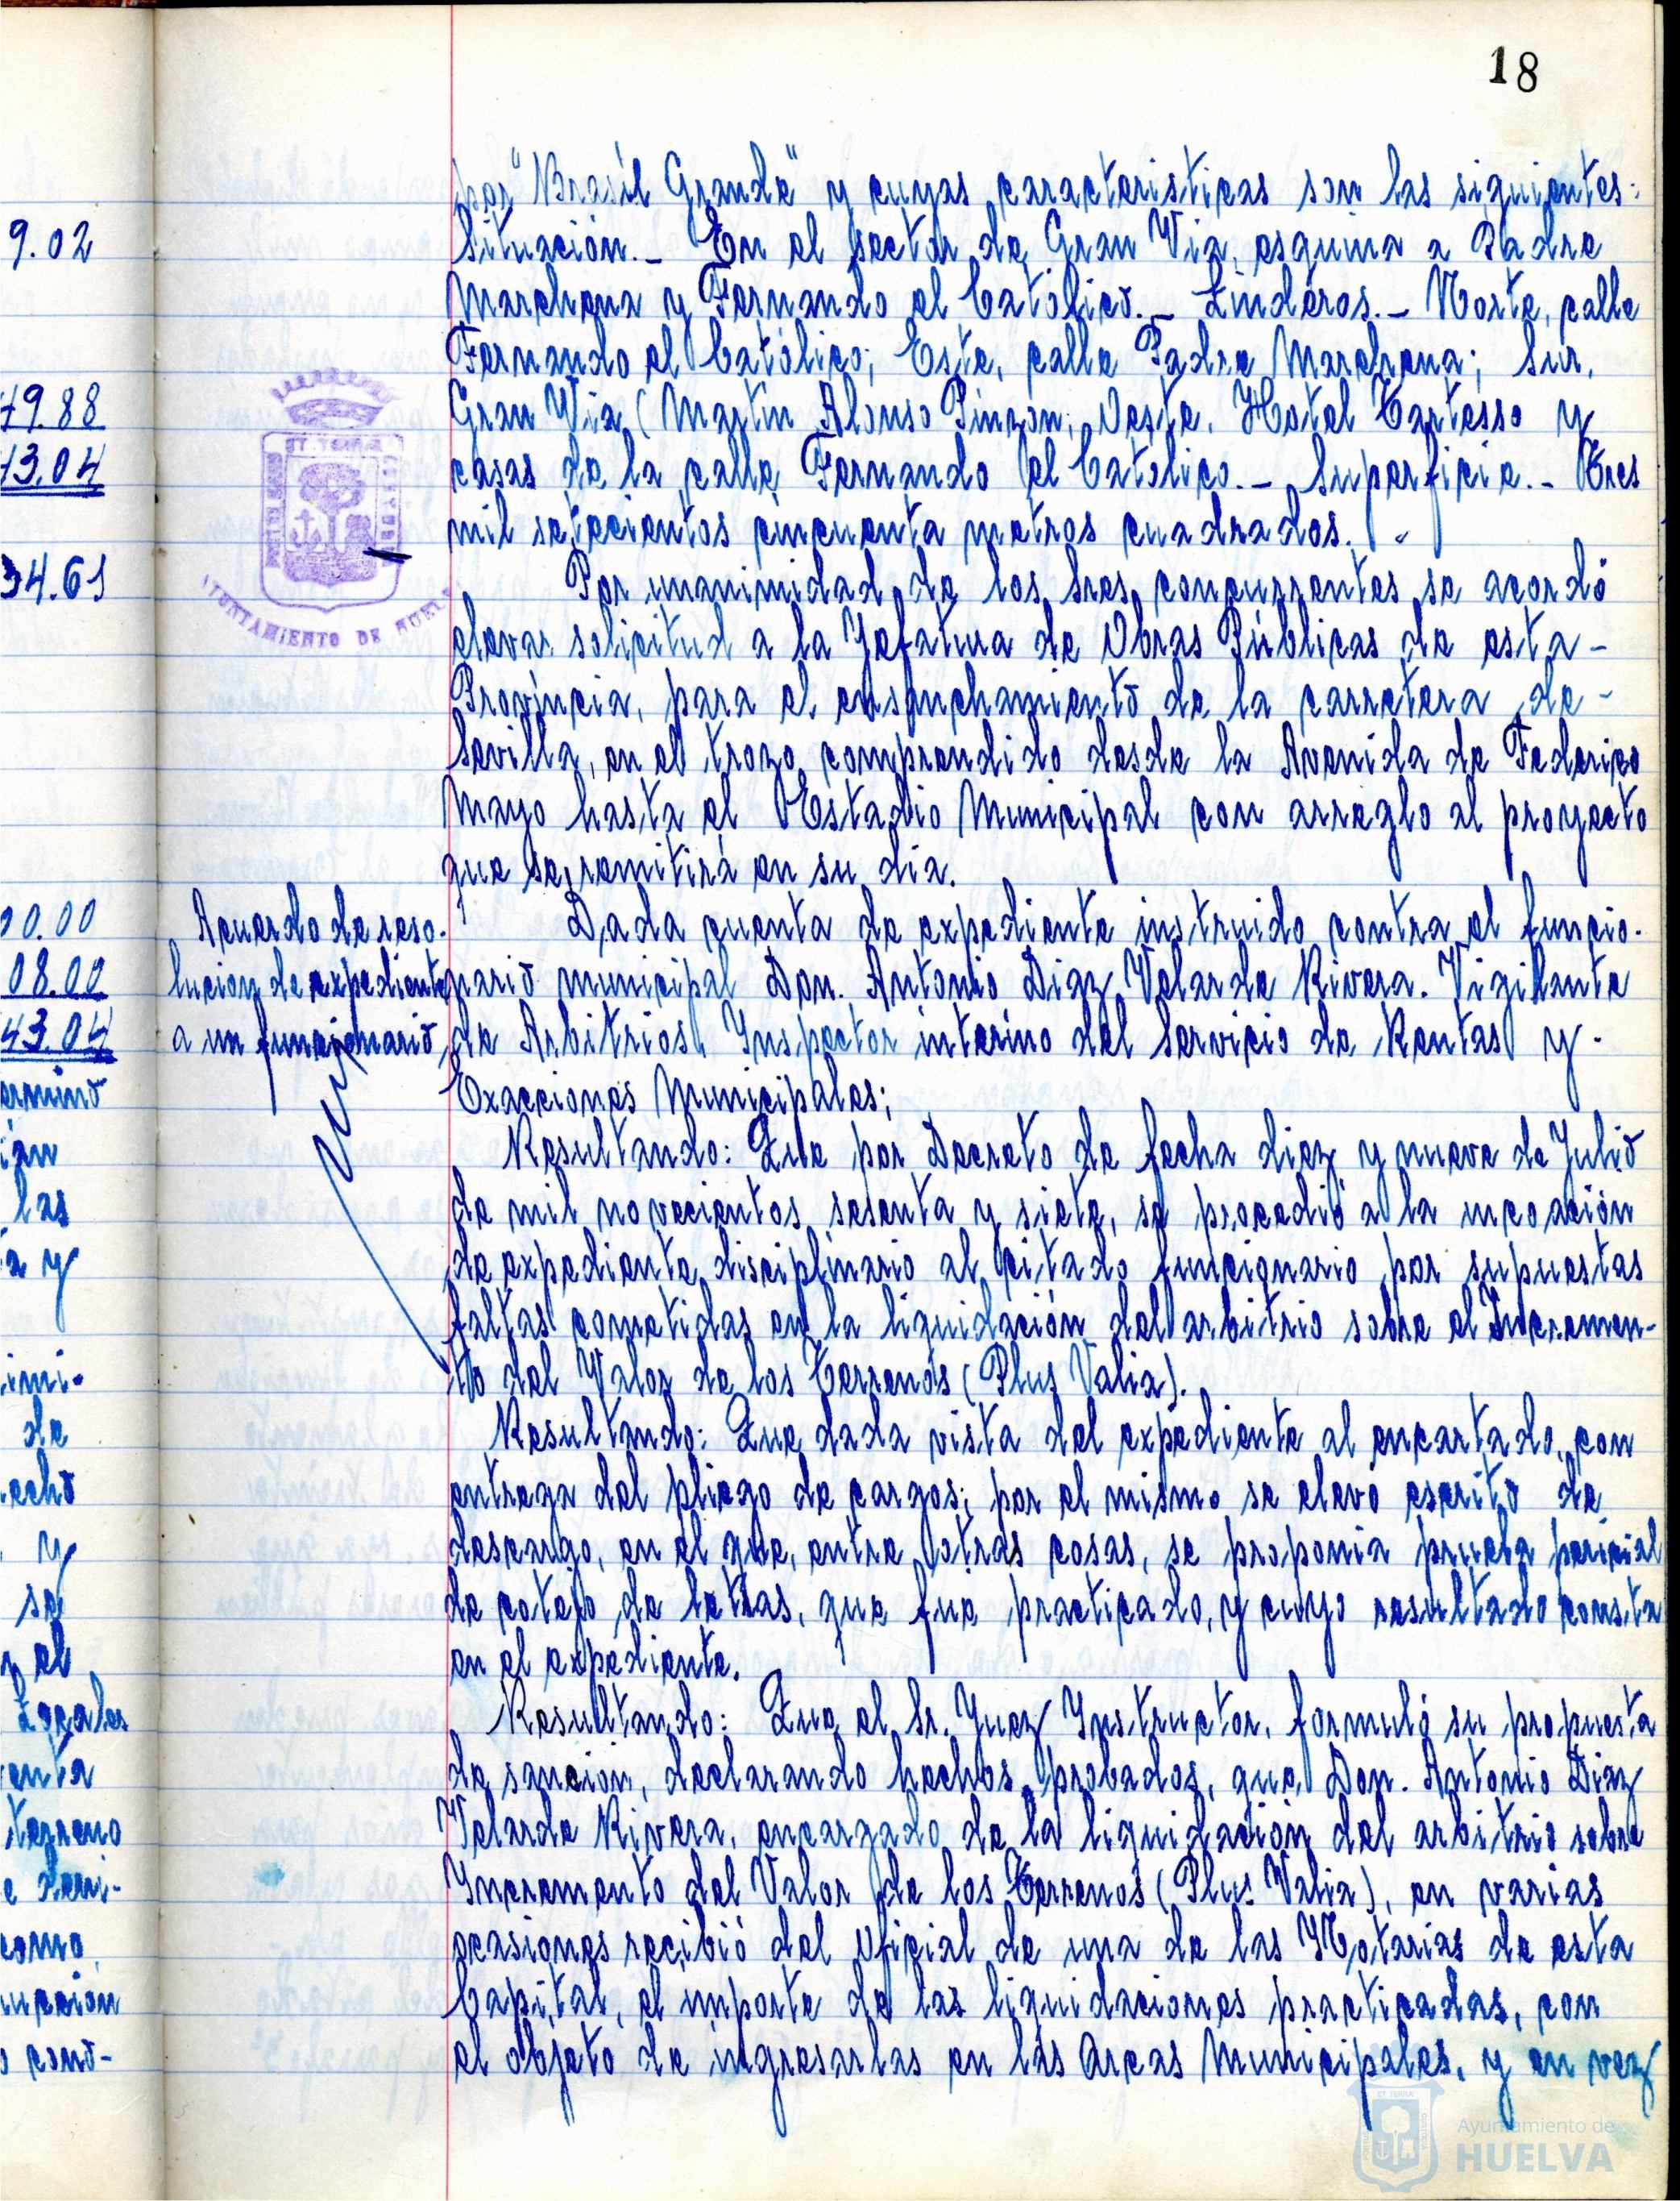 18
por "Brasil Grande" y cuyas caracteristicas son las siguientes:
Situación.- En el sector de Gran Via, esquina a Padre
Marchena y Fernando el Católico.- Linderos.- Norte, calle
Fernando el Católico; Este, calle Padre Marchena; Sur,
Gran Via (Martín Alonso Pinzón; Oeste, Hotel Tartesso y
casas de la calle Fernando el Católico.- Superficie.- Tres
mil setecientos cincuenta metros cuadrados.
Por unanimidad de los Sres. concurrentes se acordó
elevar solicitud a la Jefatura de Obras Públicas de esta-
Provincia, para el ensanchamiento de la carretera de-
Sevilla, en el trozo comprendido desde la Avenida de Federico
Mayo hasta el Estadio Municipal con arreglo al proyecto
que se remitirá en su dia.
Acuerdo de reso-
lucion de expediente
a un funcionario
Dada cuenta de expediente instruido contra el funcio-
nario municipal Don. Antonio Diaz Velarde Rivera. Vigilante
de Arbitrios, Ynspector interino del Servicio de Rentas y-
Exacciones Municipales;
Resultando: Que por Decreto de fecha diez y nueve de Julio
de mil novecientos sesenta y siete, se procedió a la incoación
de expediente disciplinario al citado funcionario por supuestas
faltas cometidas en la liquidación del arbitrio sobre el Incremen-
to del Valor de los Terrenos (Plus Valia).
Resultando: Que dada vista del expediente al encartado, con
entrega del pliego de cargos; por el mismo se elevó escrito de
descargo, en el que, entre otras cosas, se proponia prueba pericial
de cotejo de letras, que fue practicado, y cuyo resultado consta
en el expediente.
Resultando: Que el Sr. Juez Ynstructor, formuló su propuesta
de sanción, declarando hechos probados, que Don. Antonio Diaz
Velarde Rivera, encargado de la liquidación del arbitrio sobre
Yncremento del Valor de los Terrenos (Plus Valia), en varias
ocasiones recibió del oficial de una de las Notarias de esta
Capital, el importe de las liquidaciones practicadas, con
el objeto de ingresarlas en las Arcas Municipales, y en vez
9.02
79.88
13.04
34.61
00.00
08.00
43.04
ermino
ian
las
a y
imi-
de
echo
y
se
el
Locales
enta
terreno
e deci-
como
upcion
cono-
ET TERRA
AYUNTAMIENTO DE HUELVA
Ayuntamiento de
HUELVA